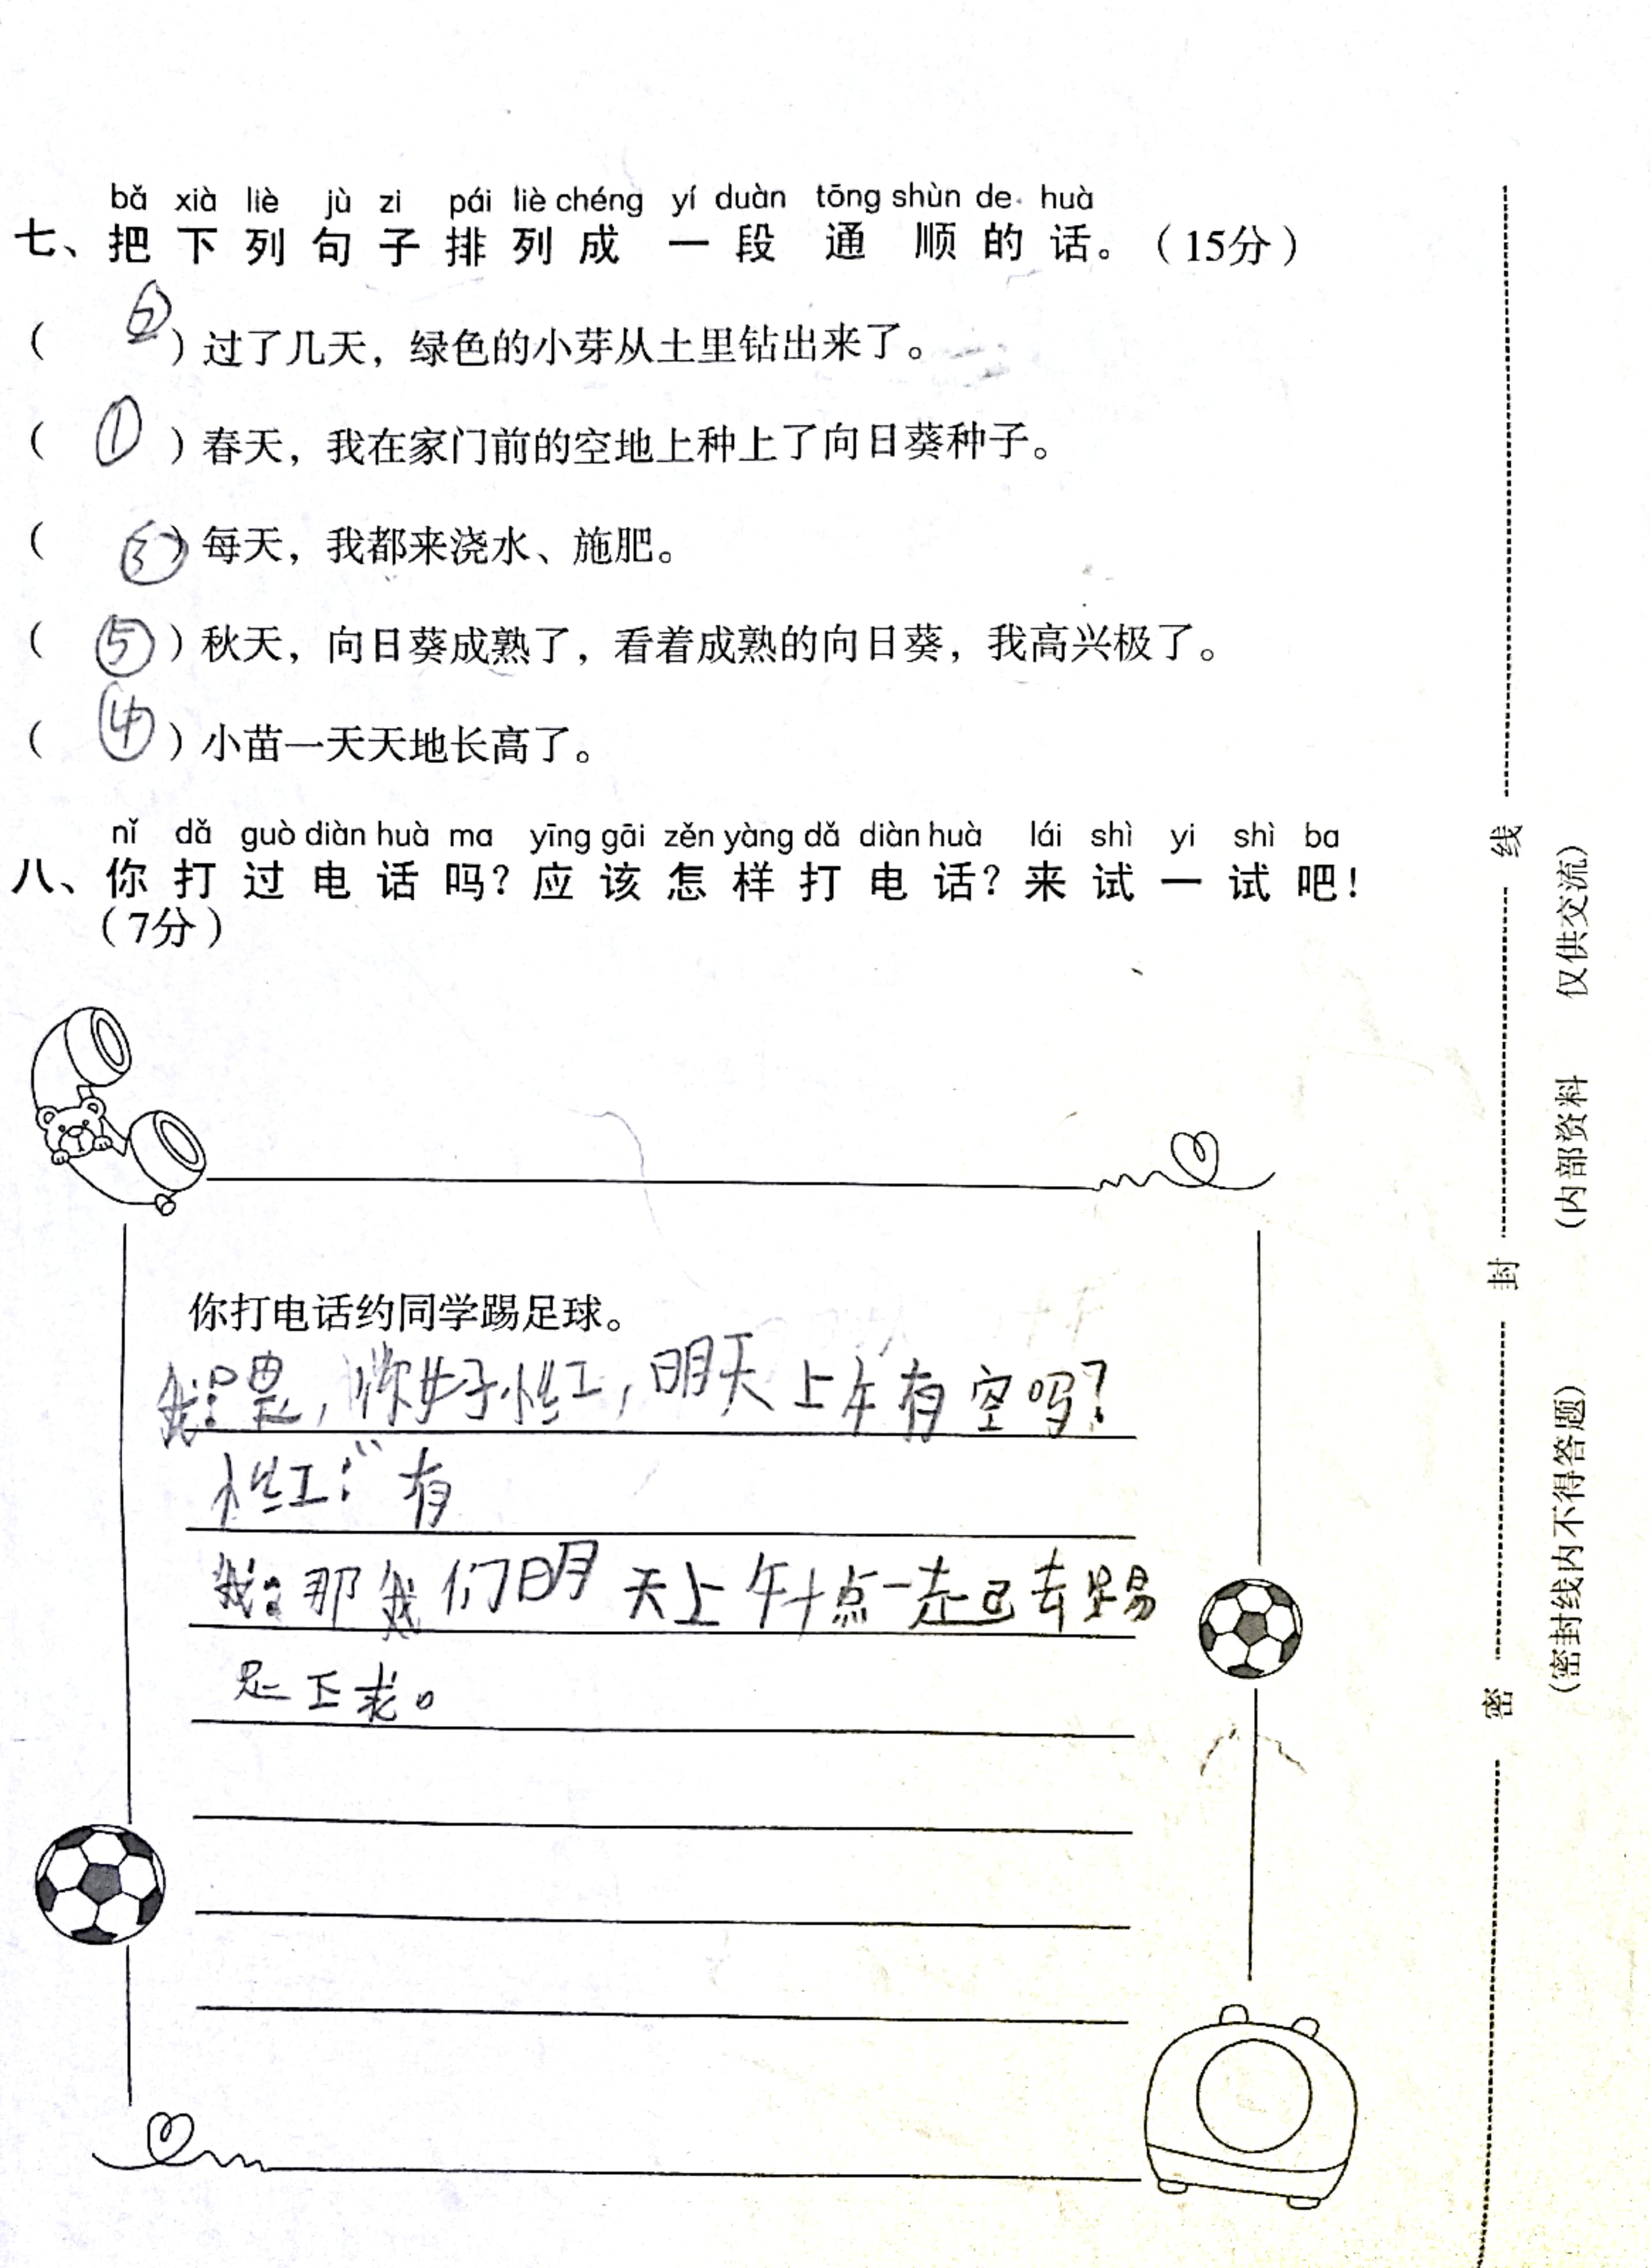 bǎ xià liè jù zi pái liè chéng yí duàn tōng shùn de huà
七、把下列句子排列成一段通顺的话。(15分)
(②)过了几天，绿色的小芽从土里钻出来了。
(①)春天，我在家门前的空地上种上了向日葵种子。
(③)每天，我都来浇水、施肥。
(⑤)秋天，向日葵成熟了，看着成熟的向日葵，我高兴极了。
(④)小苗一天天地长高了。
nǐ dǎ guò diàn huà ma yīng gāi zěn yàng dǎ diàn huà lái shì yi shì ba
八、你打过电话吗？应该怎样打电话？来试一试吧！
(7分)
你打电话约同学踢足球。
我：，你好小红，明天上午有空吗？
小红：“有
我：那我们明天上午十点一起去踢
足球。
线
封
密
(内部资料 仅供交流)
(密封线内不得答题)